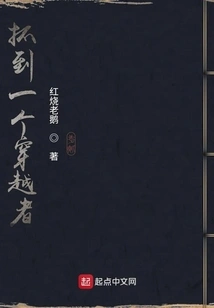 抓到一个穿越者
红烧老鹅
◎
著
起点
起点中文网